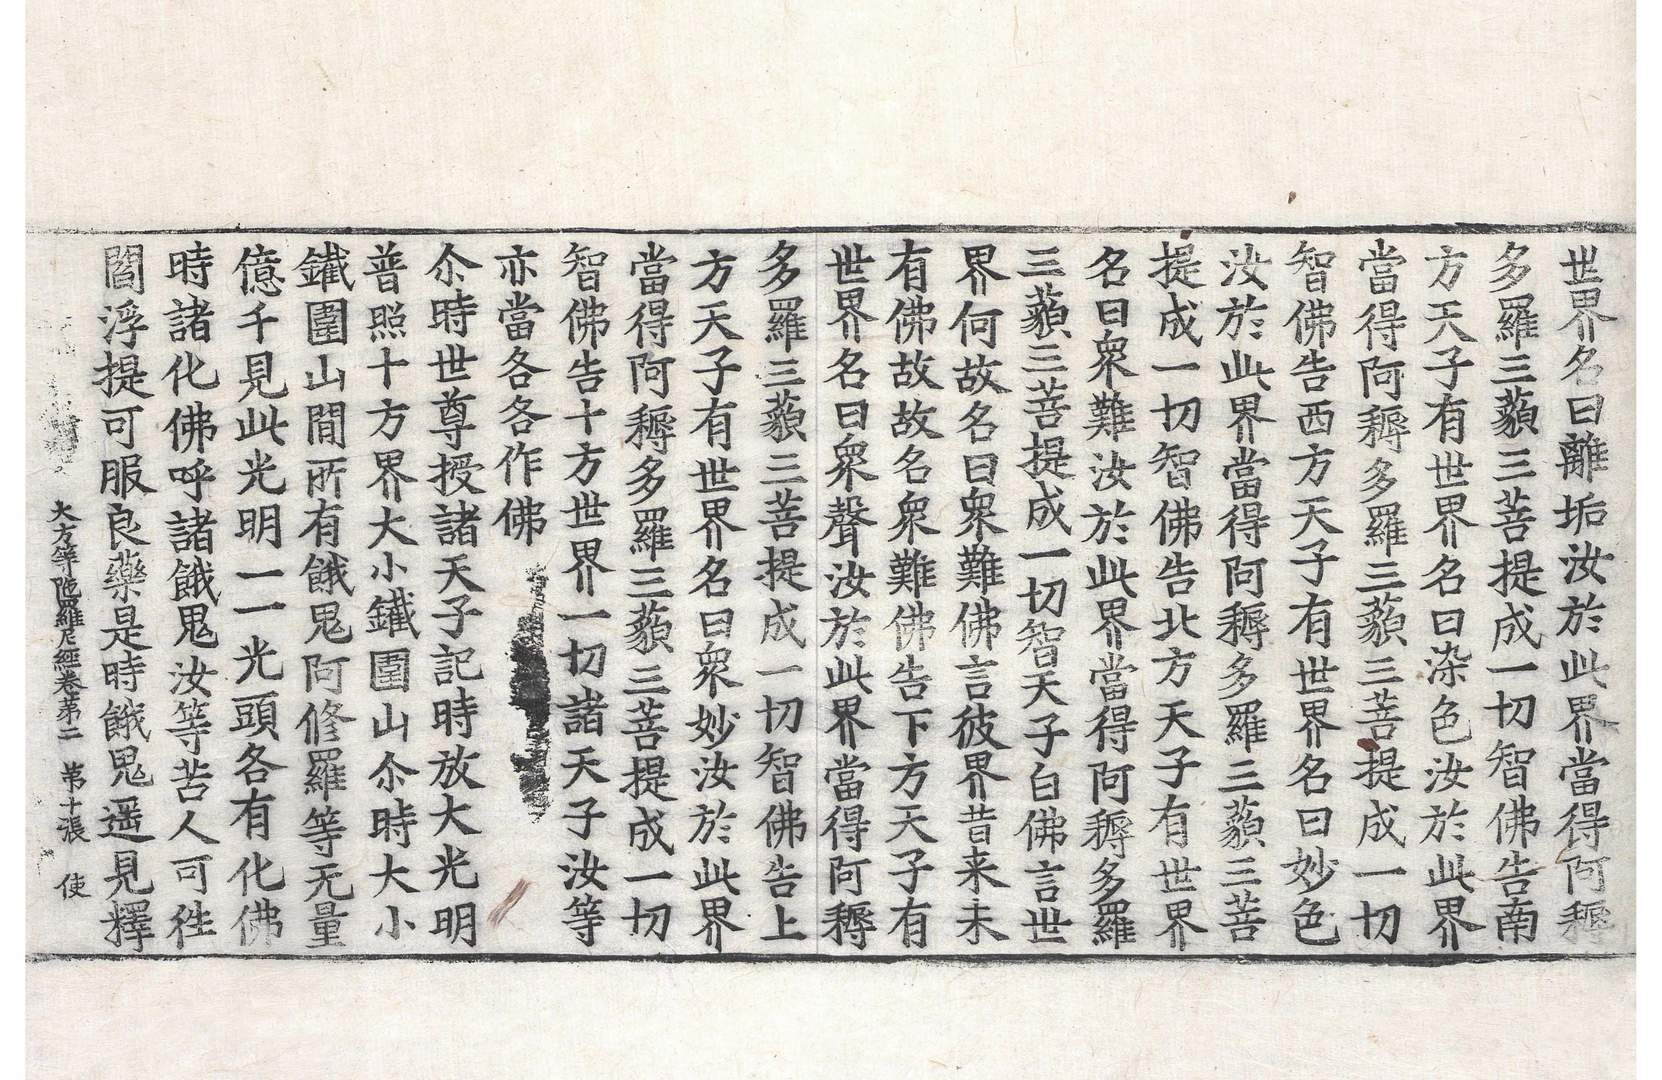 世界名曰離垢汝於此界當得阿耨
多羅三藐三菩提成一切智佛告南
方天子有世界名曰染色汝於此界
當得阿耨多羅三藐三菩提成一切
智佛告西方天子有世界名曰妙色
汝於此界當得阿耨多羅三藐三菩
提成一切智佛告北方天子有世界
名曰衆難汝於此界當得阿耨多羅
三藐三菩提成一切智天子白佛言世
界何故名曰衆難佛言彼界昔来未
有佛故故名衆難佛告下方天子有
世界名曰衆聲汝於此界當得阿耨
多羅三藐三菩提成一切智佛告上
方天子有世界名曰衆妙汝於此界
當得阿耨多羅三藐三菩提成一切
智佛告十方世界一切諸天子汝等
亦當各各作佛
尒時世尊授諸天子記時放大光明
普照十方界大小鐵圍山尒時大小
鐵圍山間所有餓鬼阿修羅等无量
億千見此光明一一光頭各有化佛
時諸化佛呼諸餓鬼汝等苦人可往
閻浮提可服良藥是時餓鬼遥見釋
大方等陁羅尼經卷第二 第十張 使